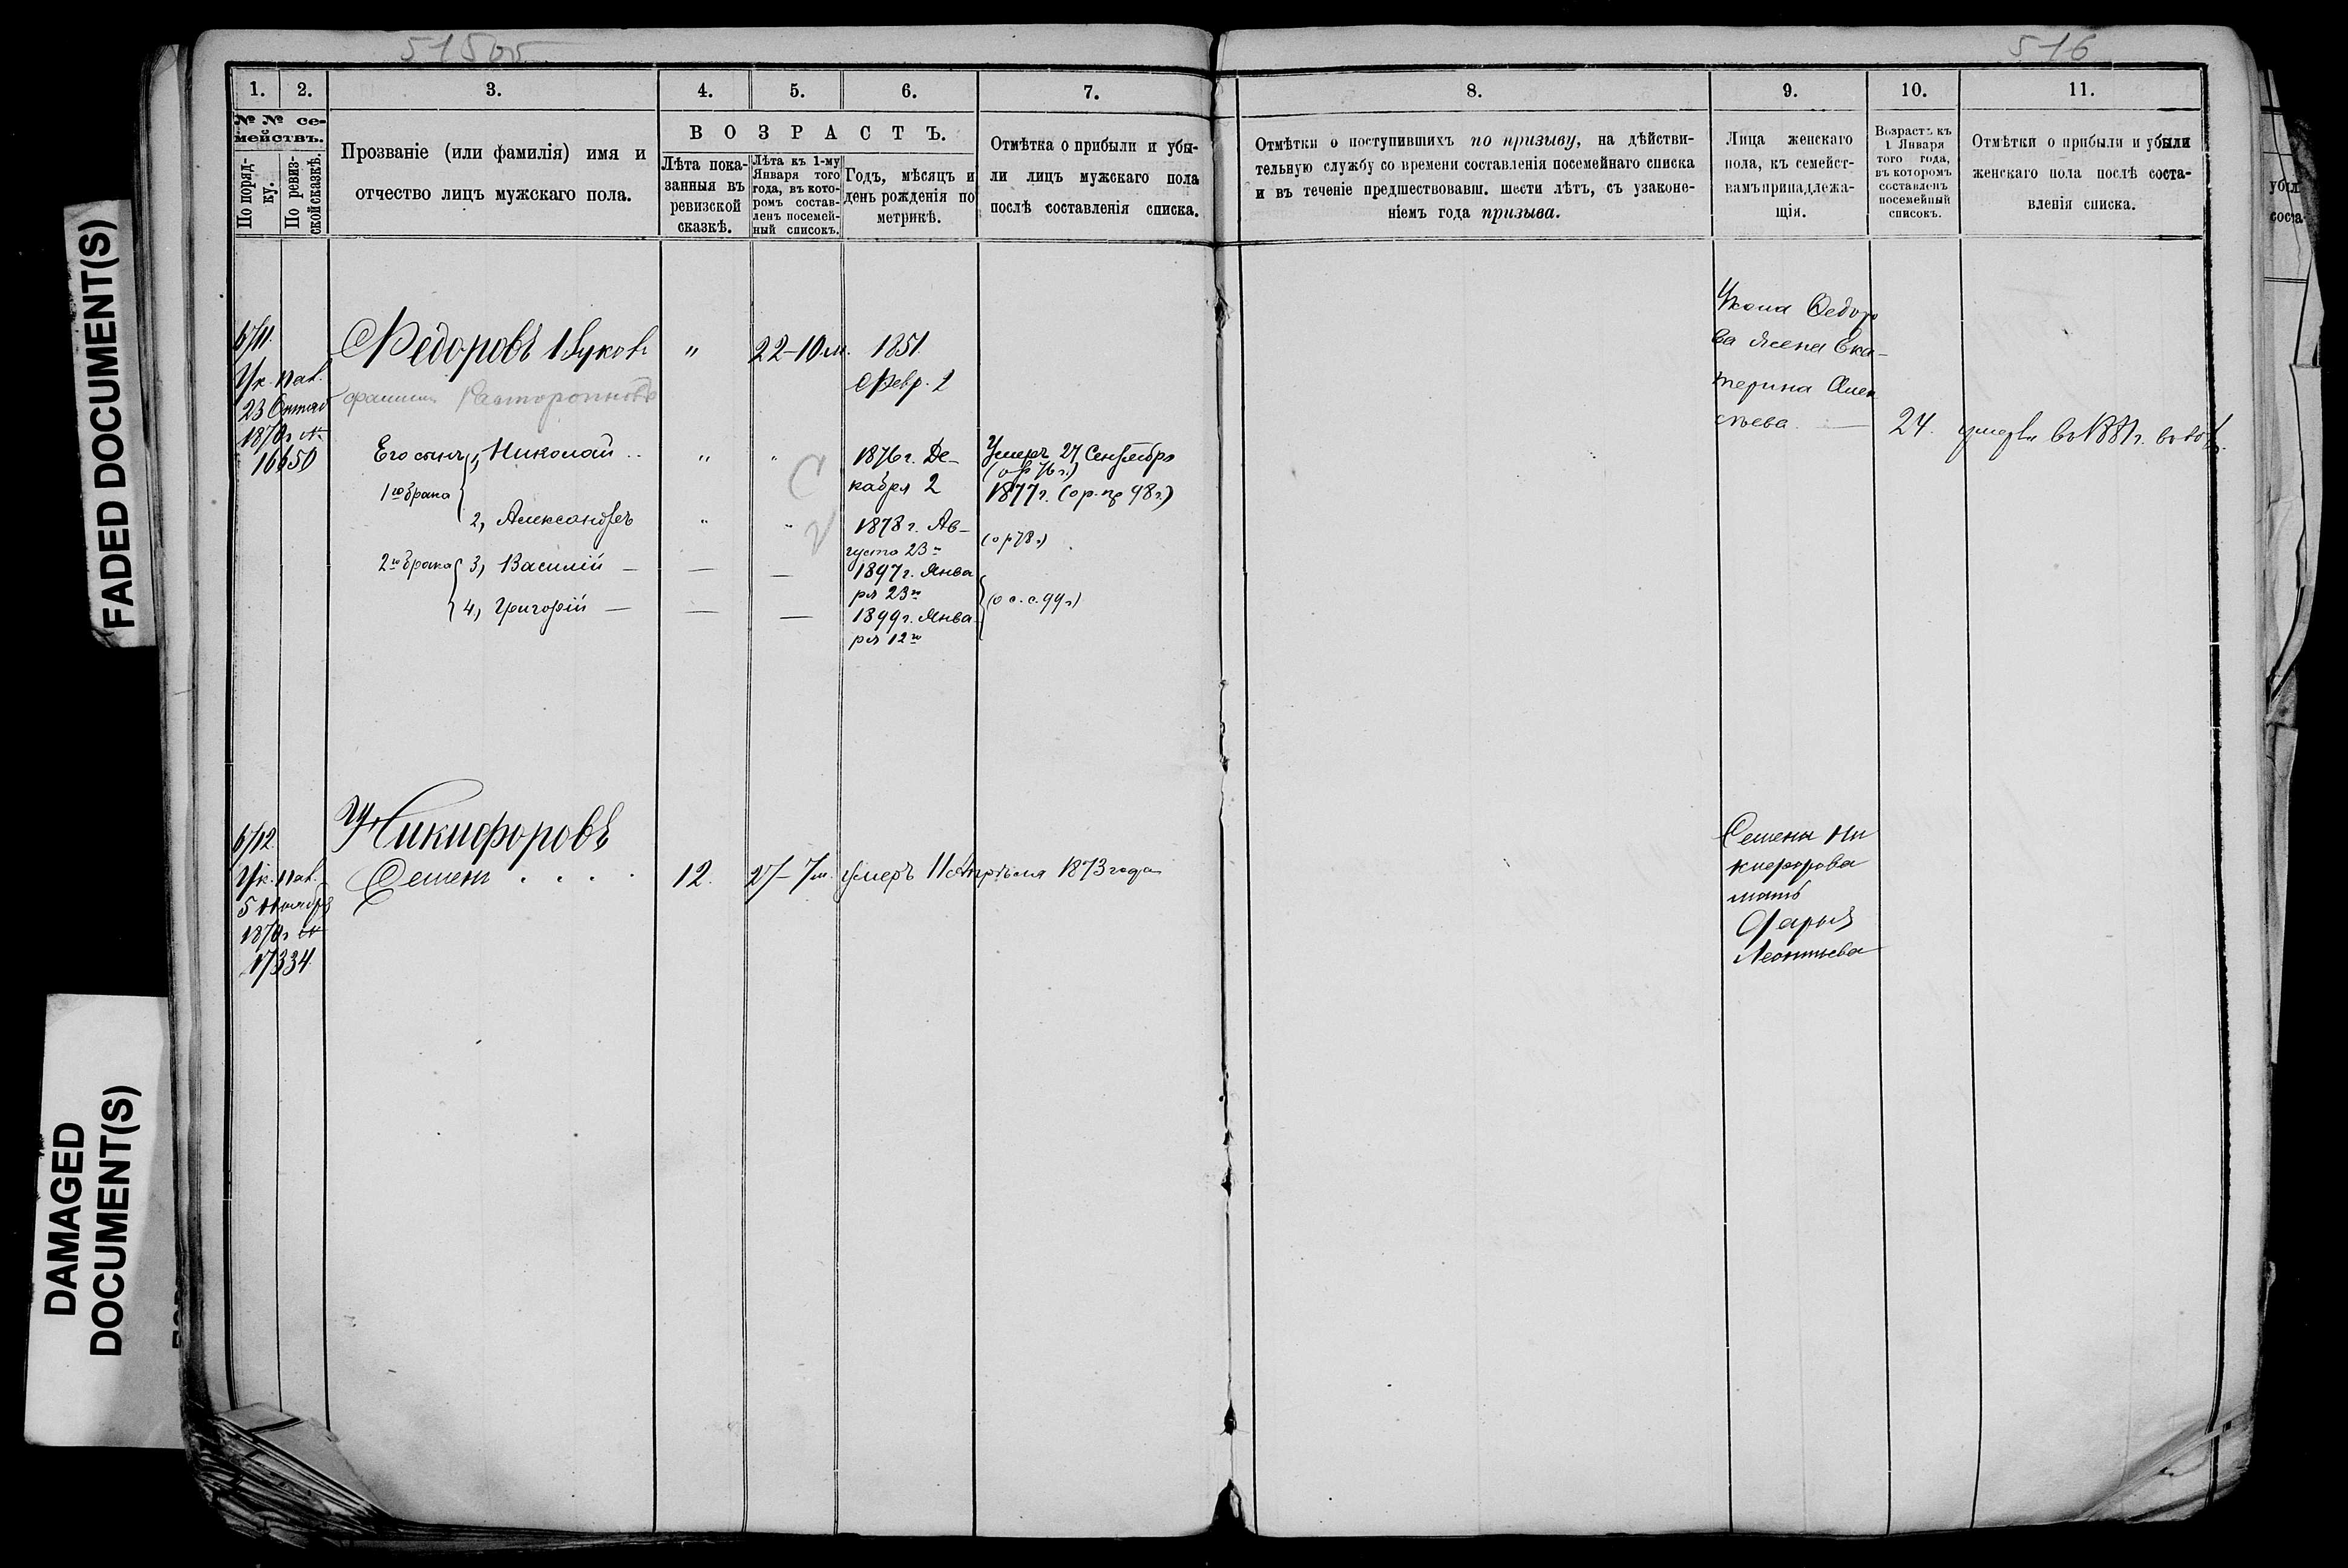 515об
516
FADED DOCUMENT(S)
DAMAGED
DOCUMENT(S)
1.
2.
3.
4.
5.
6.
7.
8.
9.
10.
11.
№ № се-
мействъ.
По поряд-
ку.
По ревиз-
ской сказкѣ.
Прозваніе (или фамилія) имя и
отчество лицъ мужскаго пола.
ВОЗРАСТЪ.
Лѣта пока-
занныя въ
ревизской
сказкѣ.
Лѣта къ 1-му
Января того
года, въ кото-
ромъ состав-
ленъ посемей-
ный списокъ.
Годъ, мѣсяцъ и
день рожденія по
метрикѣ.
Отмѣтка о прибыли и убы-
ли лицъ мужскаго пола
послѣ составленія списка.
Отмѣтки о поступившихъ по призыву, на дѣйстви-
тельную службу со времени составленія посемейнаго списка
и въ теченіе предшествовавш. шести лѣтъ, съ узаконе-
ніемъ года призыва.
Лица женскаго
пола, къ семейст-
вамъ принадлежа-
щія.
Возрастъ къ
1 Января
того года,
въ которомъ
составленъ
посемейный
списокъ.
Отмѣтки о прибыли и убыли
женскаго пола послѣ соста-
вленія списка.
671.
Ук. пал.
23 Октяб
1870 г №
16650
Федоровъ
"
22-10 м.
1851.
Февр. 2
фамилия Расторопновъ
Его сынъ 1, Николай
"
"
1876 г. Де-
кабря 2
Умеръ 27 Сентября
(ор 76 г.)
1877 г. (ор. пр 98 г.)
1го брака
2, Александръ
"
"
1878 г. Ав-
густа 23го
(ор 78 г.)
2го брака 3, Василій —
—
—
1897 г. Янва
ря 23го
4, Григорій —
—
—
1899 г. Янва
ря 12го
(о с. с. 99 г.)
Федоро
ва жена Ека-
терина Алек
сѣева. —
24.
умерла въ 1881 г.
672.
Ук. пал.
5 Ноября
1870 г №
17334
Никифоровъ
Семенъ . . . .
12.
27-7 м.
умеръ 11 Апрѣля 1873 года
Семена Ни
кифорова
мать
Дарья
Леонтьева
убыл
соста